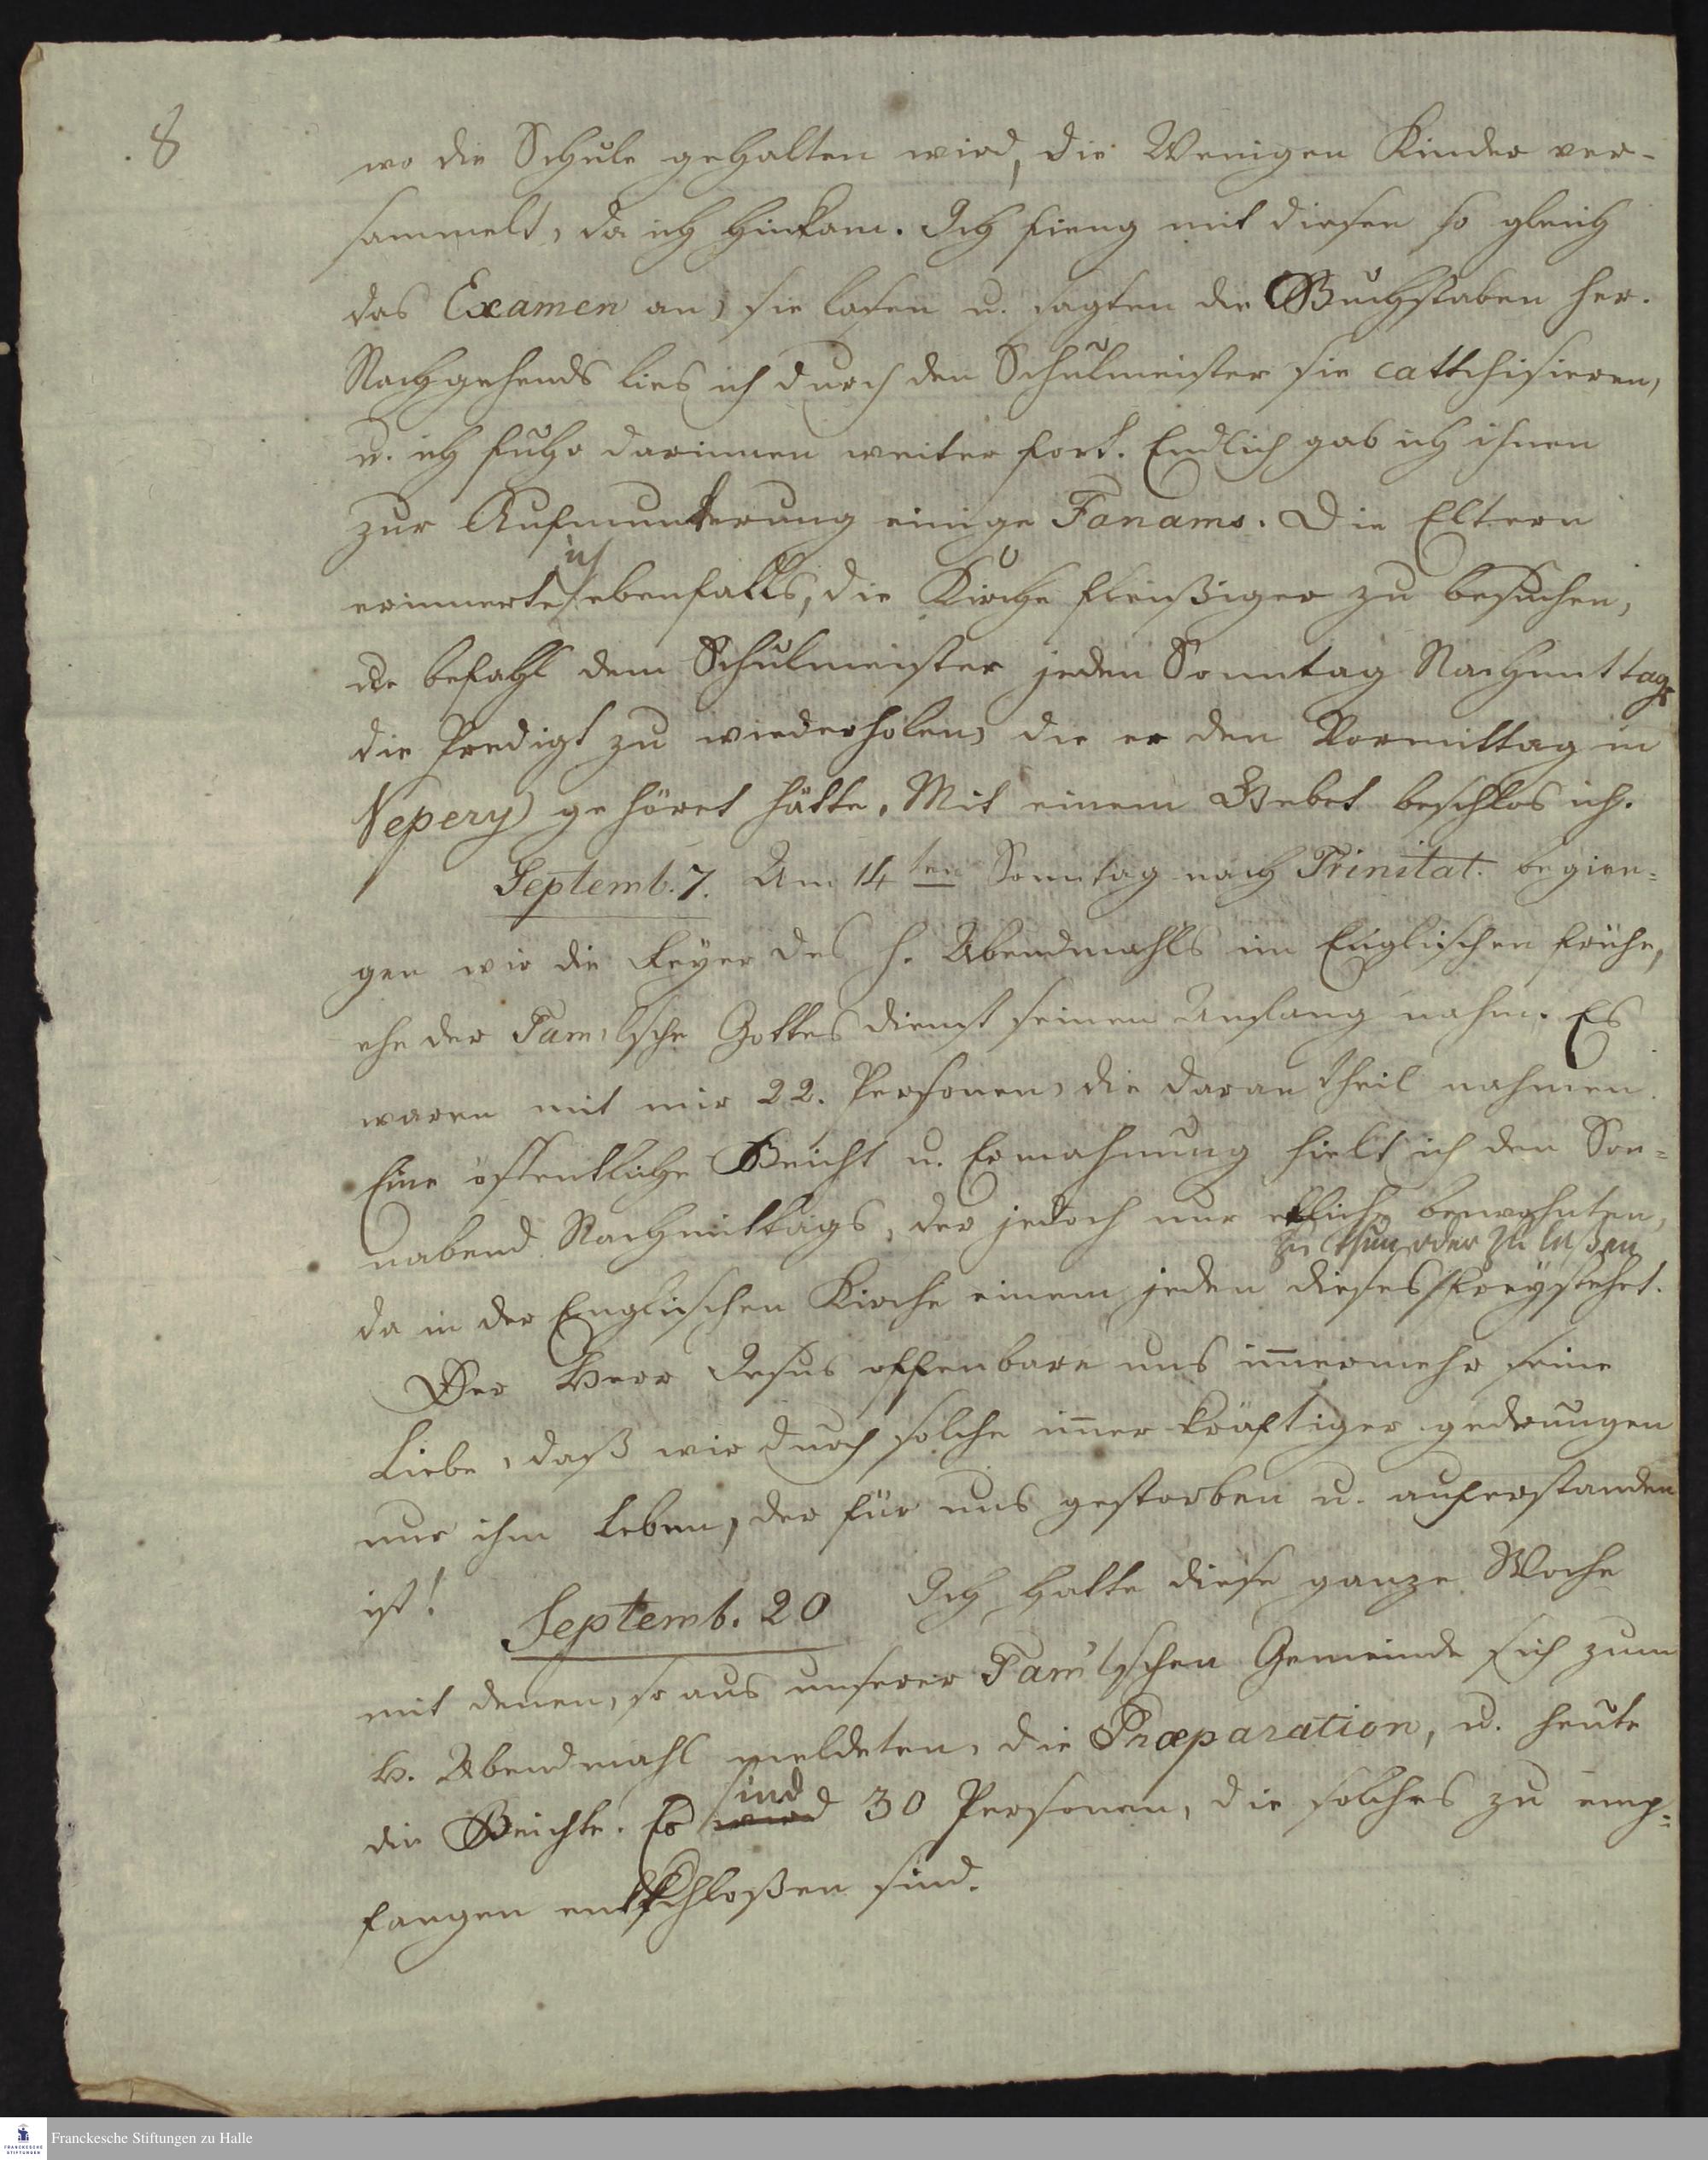 8
wo die Schule gehalten wird, die Wenigen Kinder ver-
sammelt, da ich hinkam. Ich fieng mit diesen so gleich
das Examen an, sie lasen u. sagten die Buchstaben her.
Nachgehends lies ich durch den Schulmeister sie cattchisieren,
u. ich fuhr darinnen weiter fort. Endlich gab ich ihnen
zur Aufmunterung einige Fanams. Die Eltern
ich
erinnerte ebenfalls, die Kirche fleißiger zu besuchen,
u. befahl dem Schulmeister jeden Sonntag Nachmittags
die Predigt zu wiederholen, die er den Vormittag in
Vepery gehöret hätte. Mit einem Gebet beschlos ich.
Septemb. 7. Am 14ten Sonntag nach Trinitat. begien=
gen wir die Feyer des h. Abendmahls im Englischen frühe,
ehe der Tamilsche Gottesdienst seinen Anfang nahm. Es
waren mit mir 22. Personen, die daran theil nahmen.
Eine öffentliche Beicht u. Ermahnung hielt ich den Son=
nabend Nachmittags, der jedoch nur etliche beywohnten,
zu thun oder zu laßen
da in der Englischen Kirche einem jeden dieses freystehet.
Der Herr Jesus offenbare uns im̅ermehr seine
Liebe, daß wir durch solche im̅er kräftiger gedrungen
nur ihm Leben, der für uns gestorben u. auferstanden
ist! Septemb. 20 Ich hatte diese ganze Woche
mit denen, so aus unserer Tamilschen Gemeinde sich zum
H. Abendmahl meldeten, die Præparation, u. heute
sind
die Beichte. Es wird 30 Personen, die solches zu emp=
fangen entschloßen sind.
Franckesche Stiftungen zu Halle
FRANCKESCHE
STIFTUNGEN